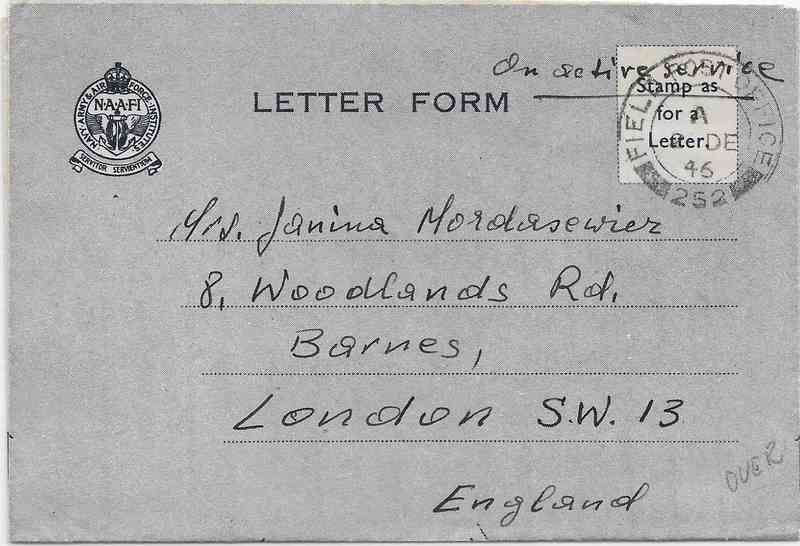 On active service
NAVY, ARMY & AIR FORCE INSTITUTES
N·A·A·F·I
SERVITOR SERVIENTIUM
LETTER FORM
Stamp as
for a
Letter.
FIELD POST OFFICE
A
DE
46
252
Mrs. Janina Mordasewicz
8, Woodlands Rd.
Barnes,
London S.W. 13
England
OVER